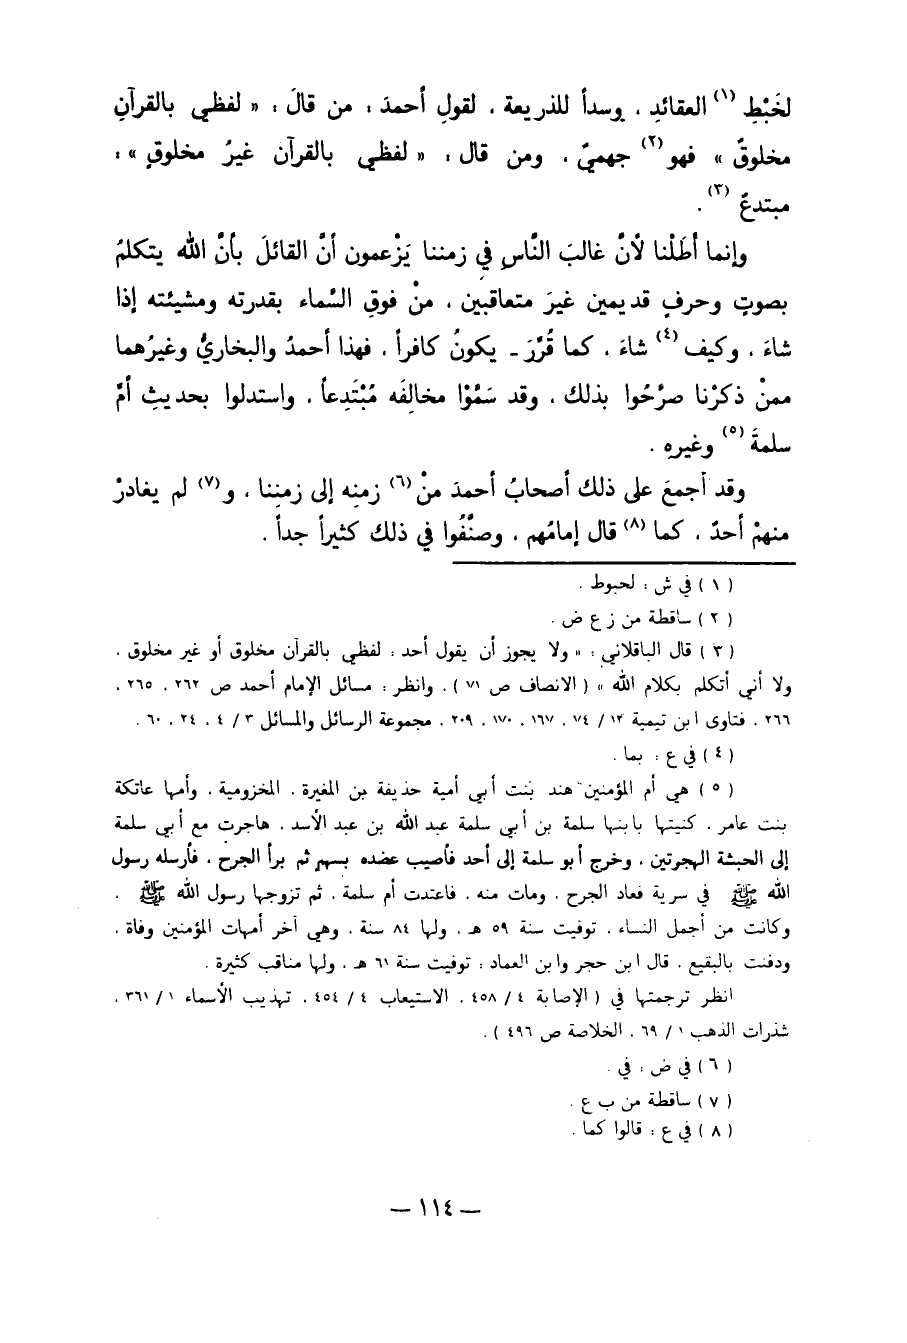 لخَبْطِ (١) العقائدِ ، وسداً للذريعة ، لقولِ أحمدَ : من قالَ : « لفظي بالقرآنِ
مخلوقٌ » فهو (٢) جهميٌّ ، ومن قال : « لفظي بالقرآن غيرُ مخلوقٍ » :
مبتدعٌ (٣) .
وإنما أطَلْنا لأنَّ غالبَ النَّاسِ في زمننا يَزْعمون أنَّ القائلَ بأنَّ الله يتكلمُ
بصوتٍ وحرفٍ قديمين غيرَ متعاقبين ، منْ فوقِ السَّماء بقدرته ومشيئته إذا
شاءَ ، وكيف (٤) شاءَ ، كما قُرِّرَ - يكونُ كافراً ، فهذا أحمدُ والبخاريُّ وغيرُهما
ممنْ ذكرْنا صرَّحُوا بذلك ، وقد سَمَّوْا مخالِفَه مُبْتَدِعاً ، واستدلوا بحديثِ أمِّ
سلمةَ (٥) وغيرِهِ .
وقد أجمعَ على ذلك أصحابُ أحمدَ منْ (٦) زمنِه إلى زمنِنا ، و(٧) لم يغادرْ
منهمْ أحدٌ ، كما (٨) قال إمامُهم ، وصنَّفُوا في ذلك كثيراً جداً .
(١) في ش : لحبوط .
(٢) ساقطة من ز ع ض .
(٣) قال الباقلاني : « ولا يجوز أن يقول أحد : لفظي بالقرآن مخلوق أو غير مخلوق ،
ولا أني أتكلم بكلام الله » ( الانصاف ص ٧١ ) . وانظر : مسائل الإمام أحمد ص ٢٦٢ ، ٢٦٥ ،
٢٦٦ ، فتاوى ابن تيمية ١٢ / ٧٤ ، ١٦٧ ، ١٧٠ ، ٢٠٩ ، مجموعة الرسائل والمسائل ٣ / ٤ ، ٢٤ ، ٦٠ .
(٤) في ع : بما .
(٥) هي أم المؤمنين هند بنت أبي أمية حذيفة بن المغيرة ، المخزومية ، وأمها عاتكة
بنت عامر ، كنيتها بابنها سلمة بن أبي سلمة عبد الله بن عبد الأسد ، هاجرت مع أبي سلمة
إلى الحبشة الهجرتين ، وخرج أبو سلمة إلى أحد فأصيب عضده بسهم ثم برأ الجرح ، فأرسله رسول
الله ﷺ في سرية فعاد الجرح ، ومات منه ، فاعتدت أم سلمة ، ثم تزوجها رسول الله ﷺ ،
وكانت من أجمل النساء ، توفيت سنة ٥٩ هـ ، ولها ٨٤ سنة ، وهي آخر أمهات المؤمنين وفاة ،
ودفنت بالبقيع . قال ابن حجر وابن العماد : توفيت سنة ٦١ هـ ، ولها مناقب كثيرة .
انظر ترجمتها في ( الإصابة ٤ / ٤٥٨ ، الاستيعاب ٤ / ٤٥٤ ، تهذيب الأسماء ١ / ٣٦١ ،
شذرات الذهب ١ / ٦٩ ، الخلاصة ص ٤٩٦ ) .
(٦) في ض : في .
(٧) ساقطة من ب ع .
(٨) في ع : قالوا كما .
— ١١٤ —